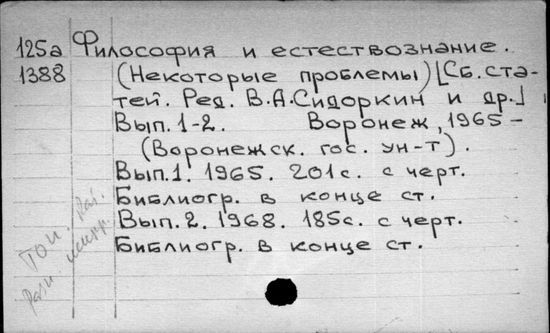 125а Философия и естествознание.
1388 (Некоторые проблемы) [Сб. ста-
тей. Ред. В.А. Сидоркин и др.]
Вып. 1-2. Воронеж, 1965-
(Воронежск. гос. ун-т).
Вып. 1. 1965. 201с. с черт.
Библиогр. в конце ст.
Вып. 2. 1968. 185с. с черт.
Библиогр. в конце ст.